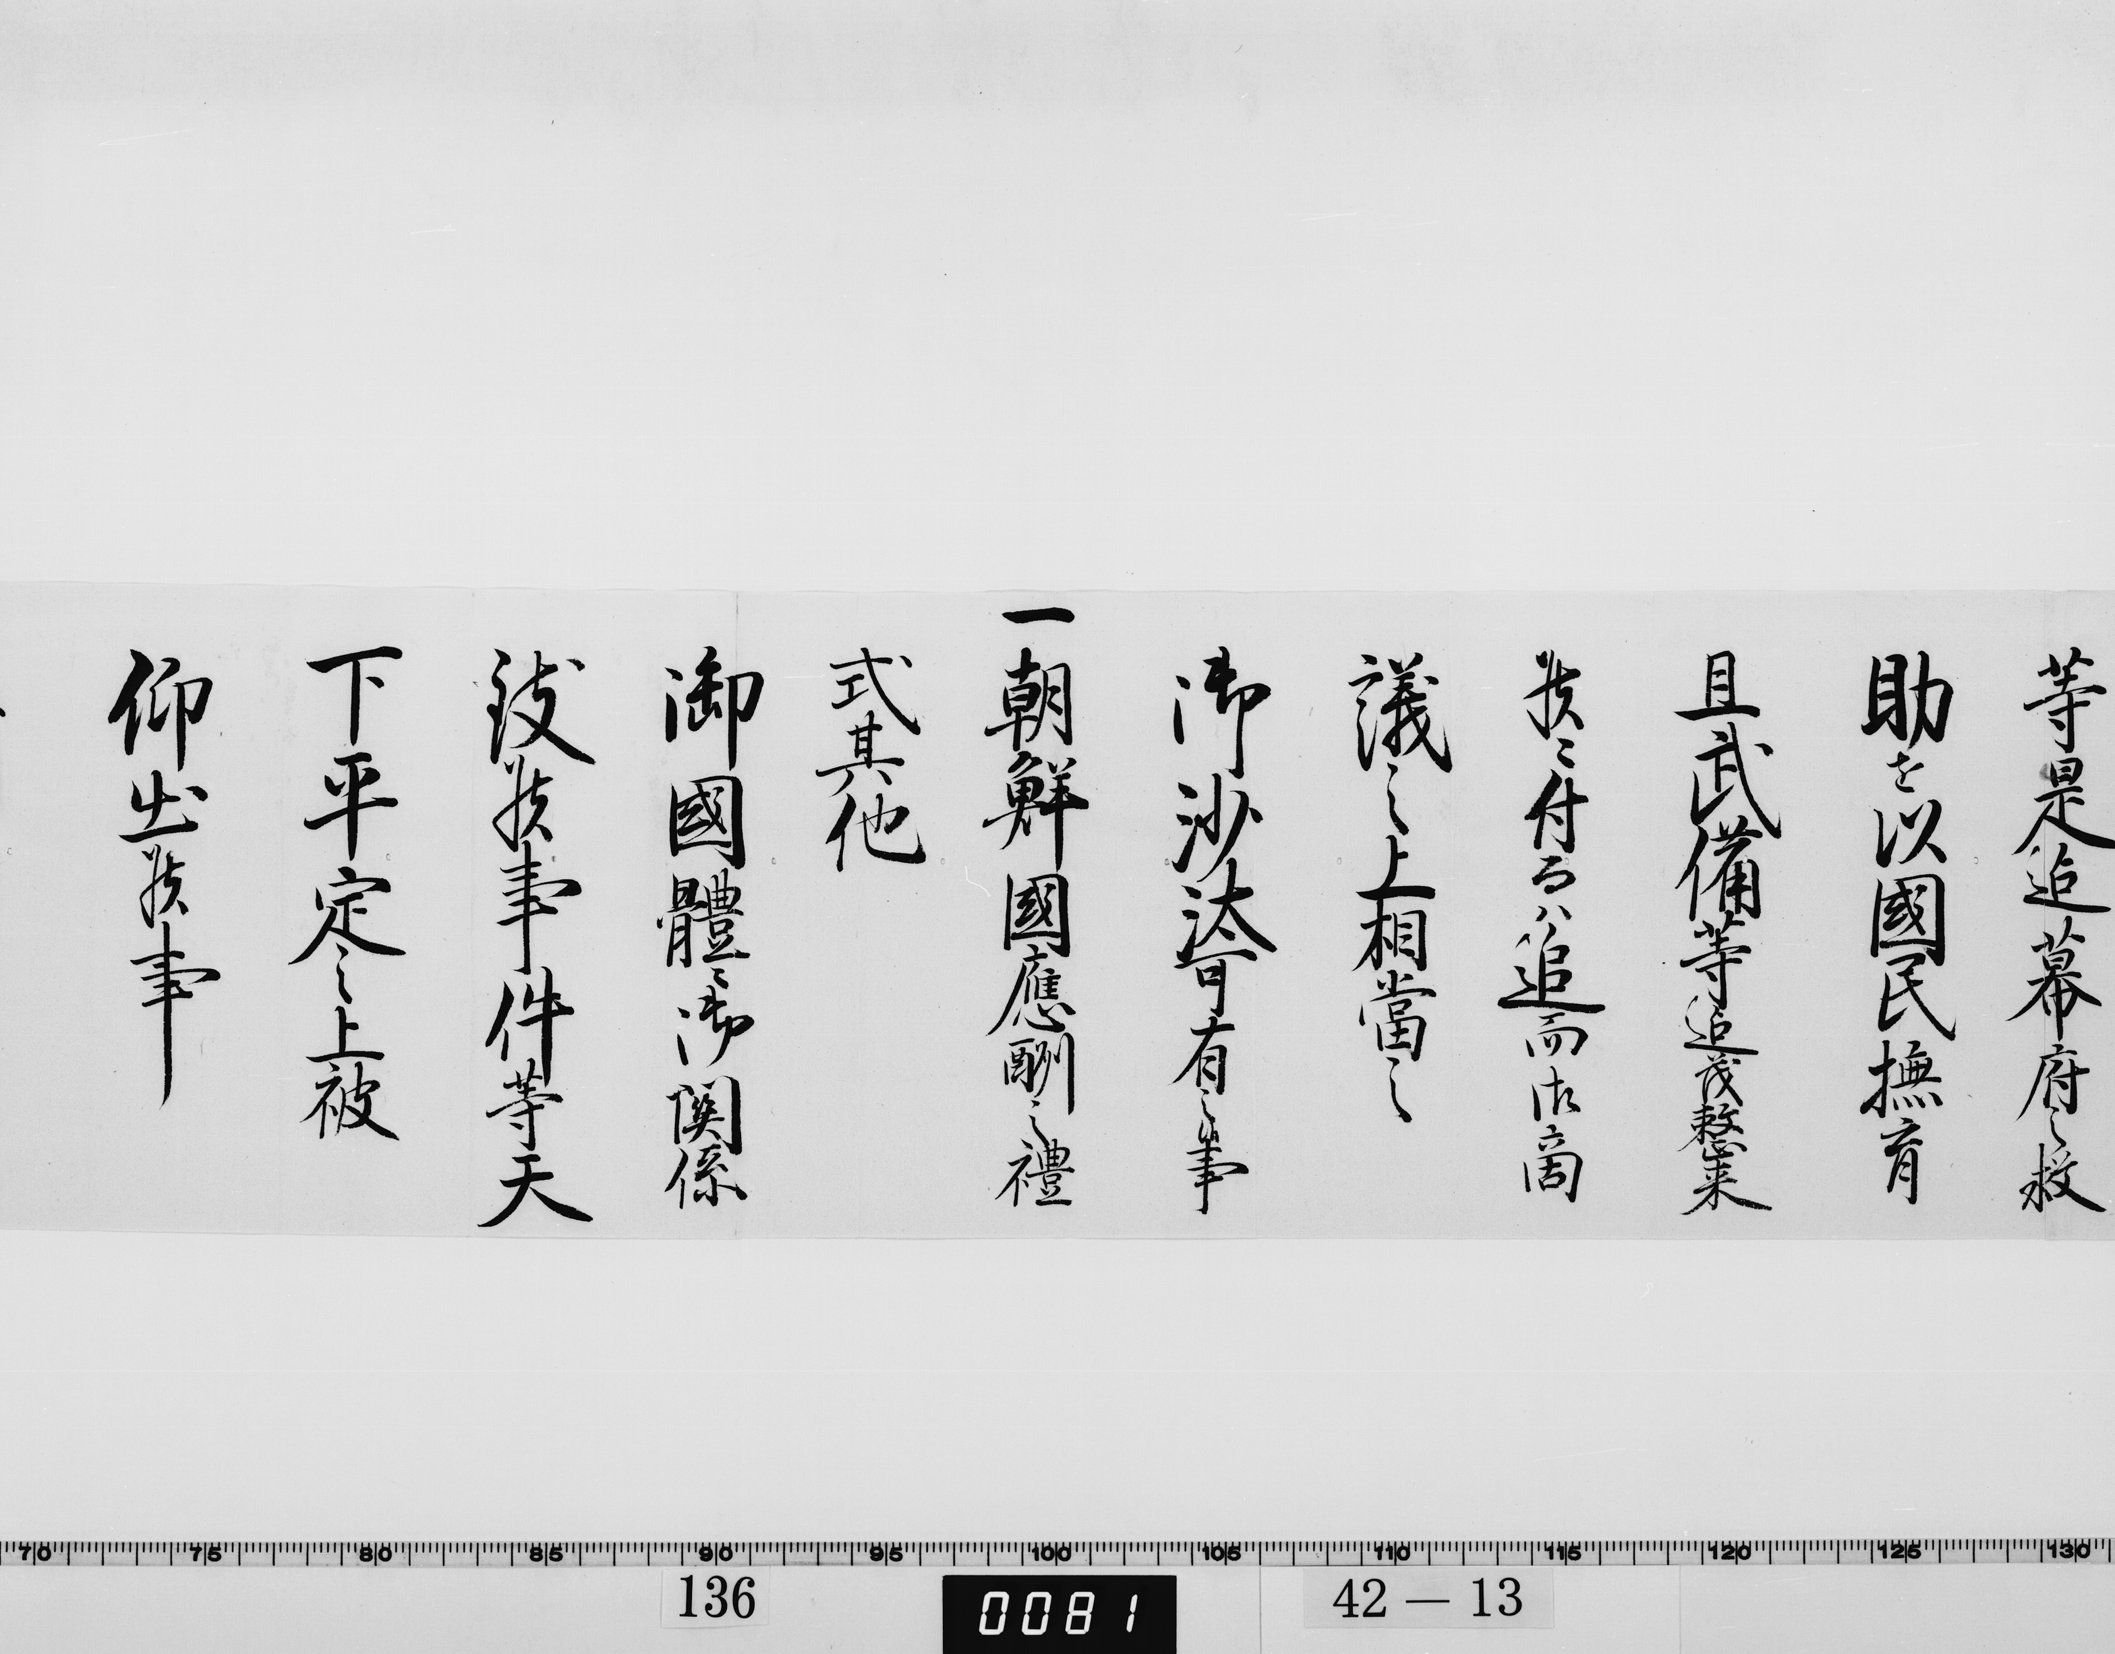 等是迄幕府之救
助を以國民撫育
且武備等迄茂整来
候ニ付而ハ追而御商
議之上相當之
御沙汰可有之事
一朝鮮國應酬之禮
式其他
御國體ニ御関係
致候事件等天
下平定之上被
仰出候事
70 75 80 85 90 95 100 105 110 115 120 125 130
136 0081 42－13